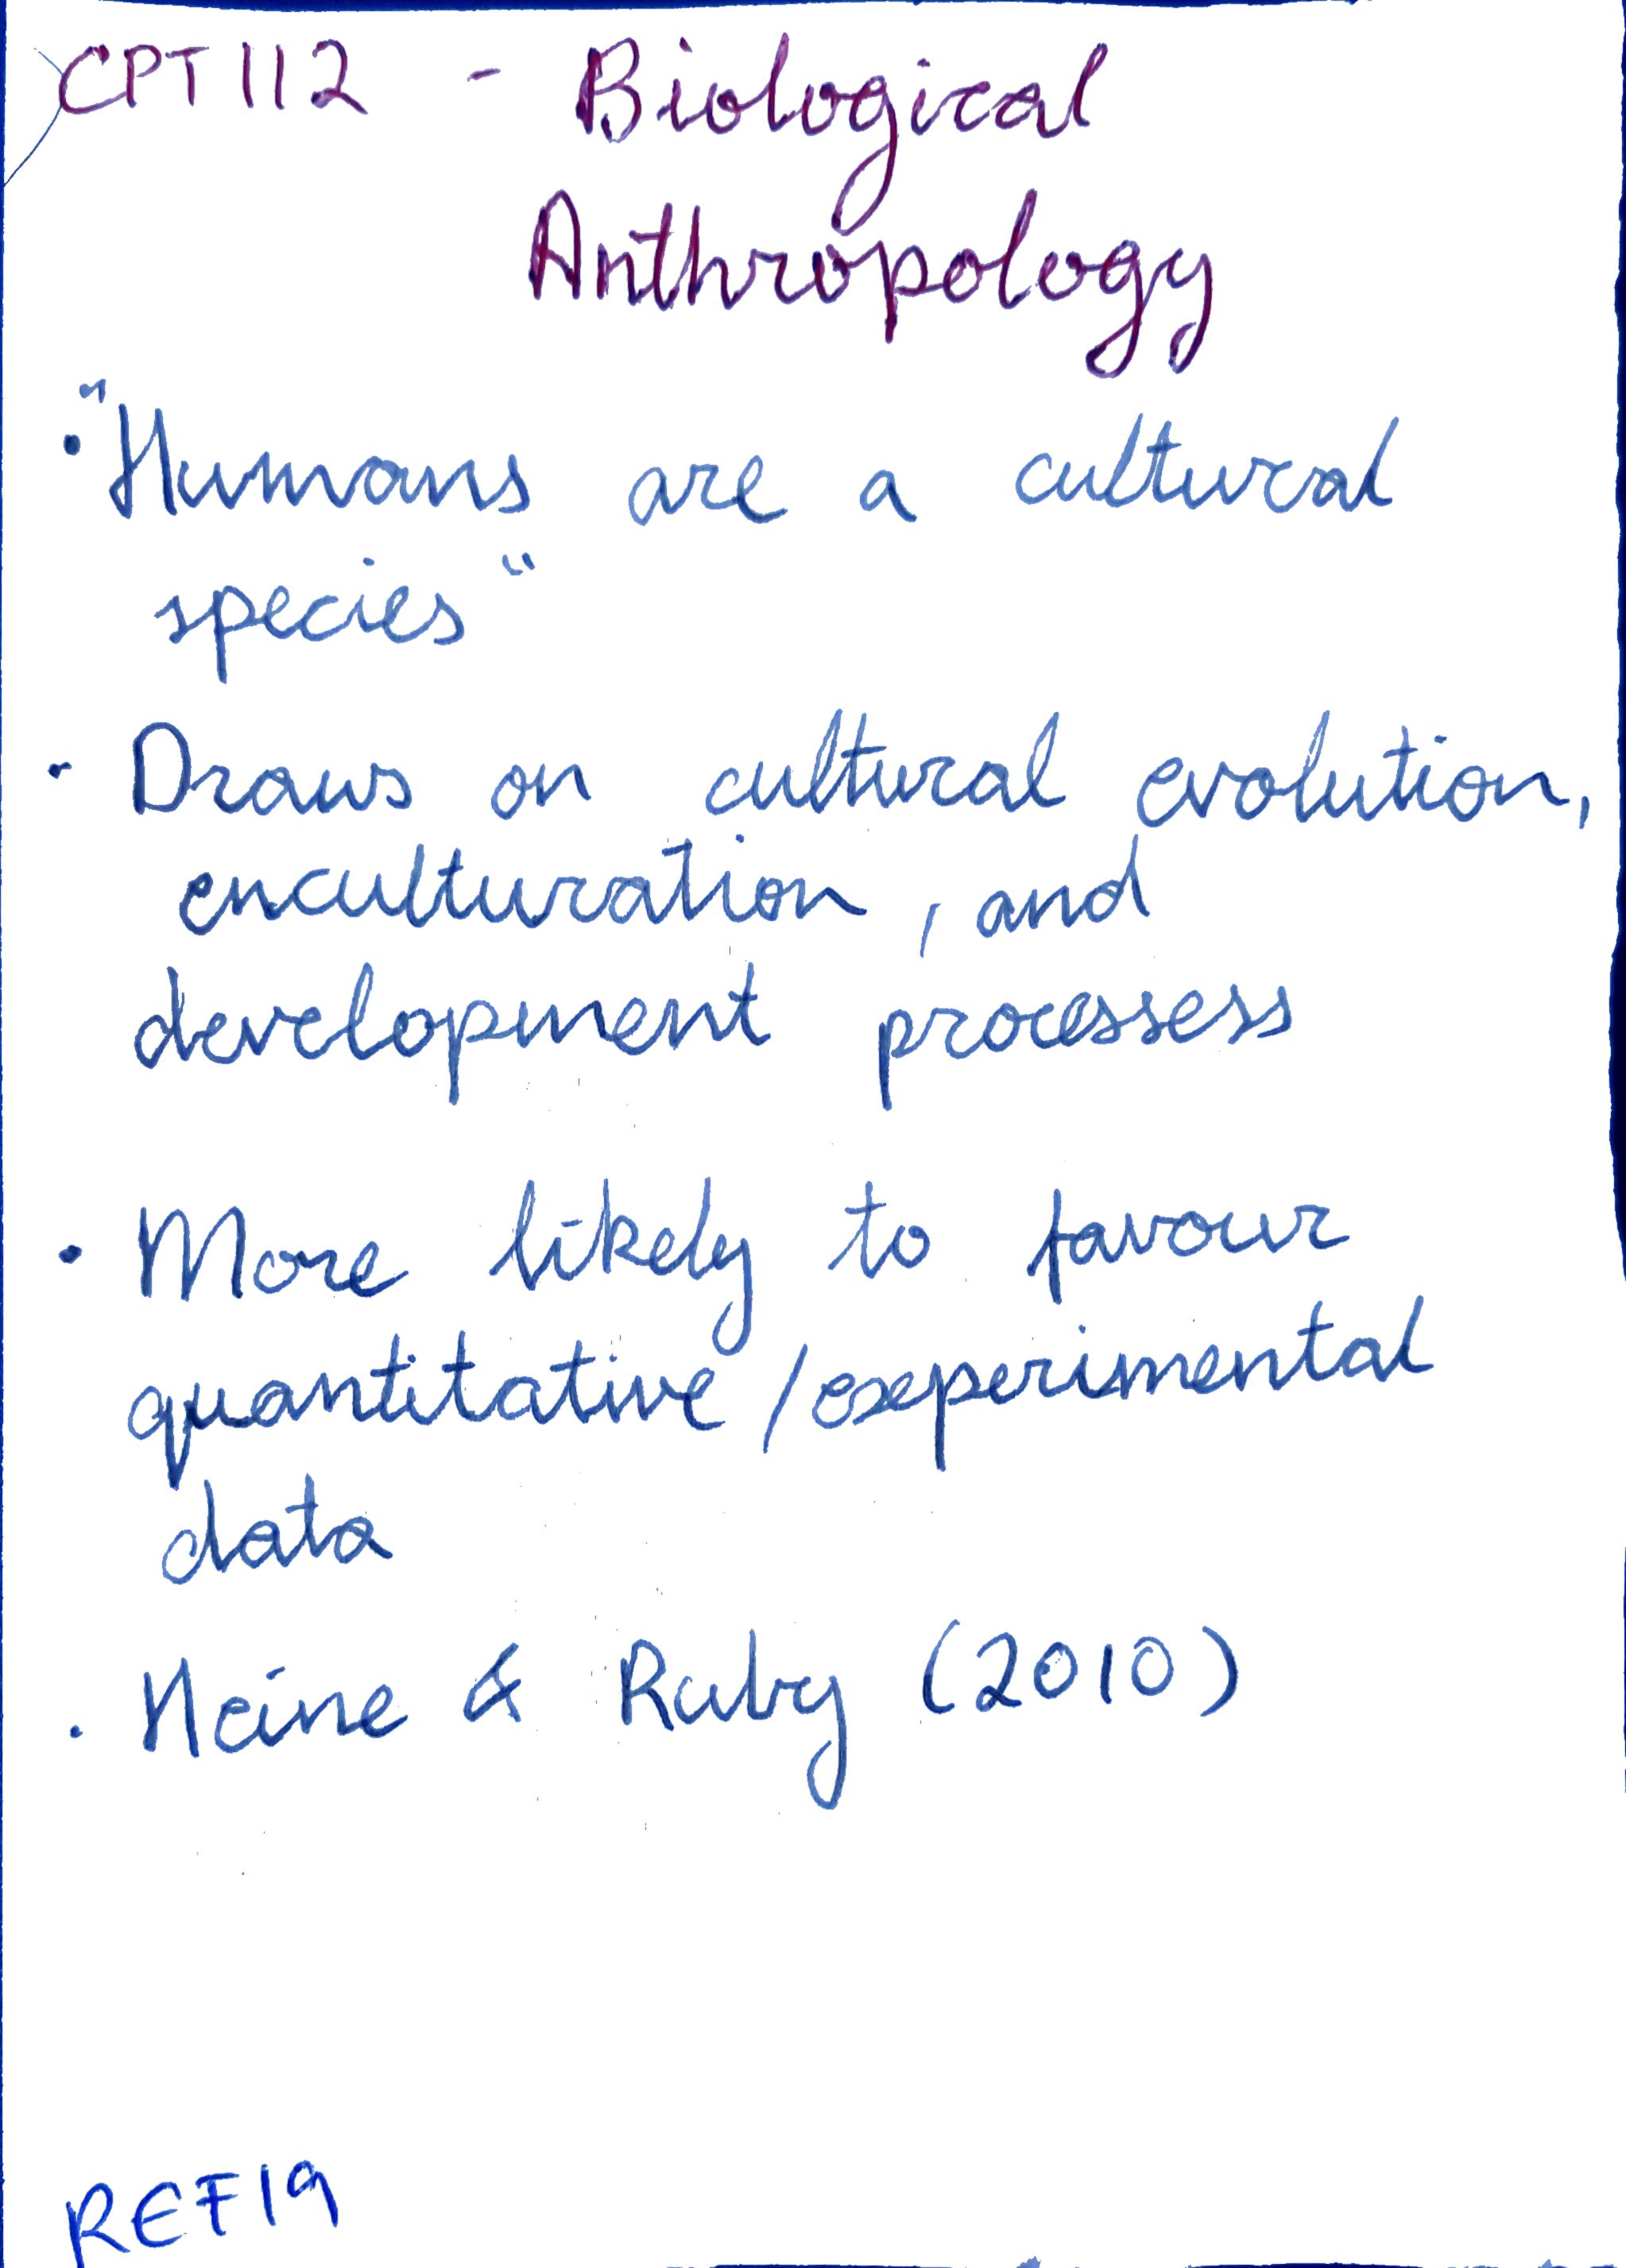 CPT112 - Biological
Anthropology
• "Humans are a cultural
species"
• Draws on cultural evolution,
enculturation, and
development processess
• More likely to favour
quantitative/experimental
data
• Heine & Ruby (2010)
REF19